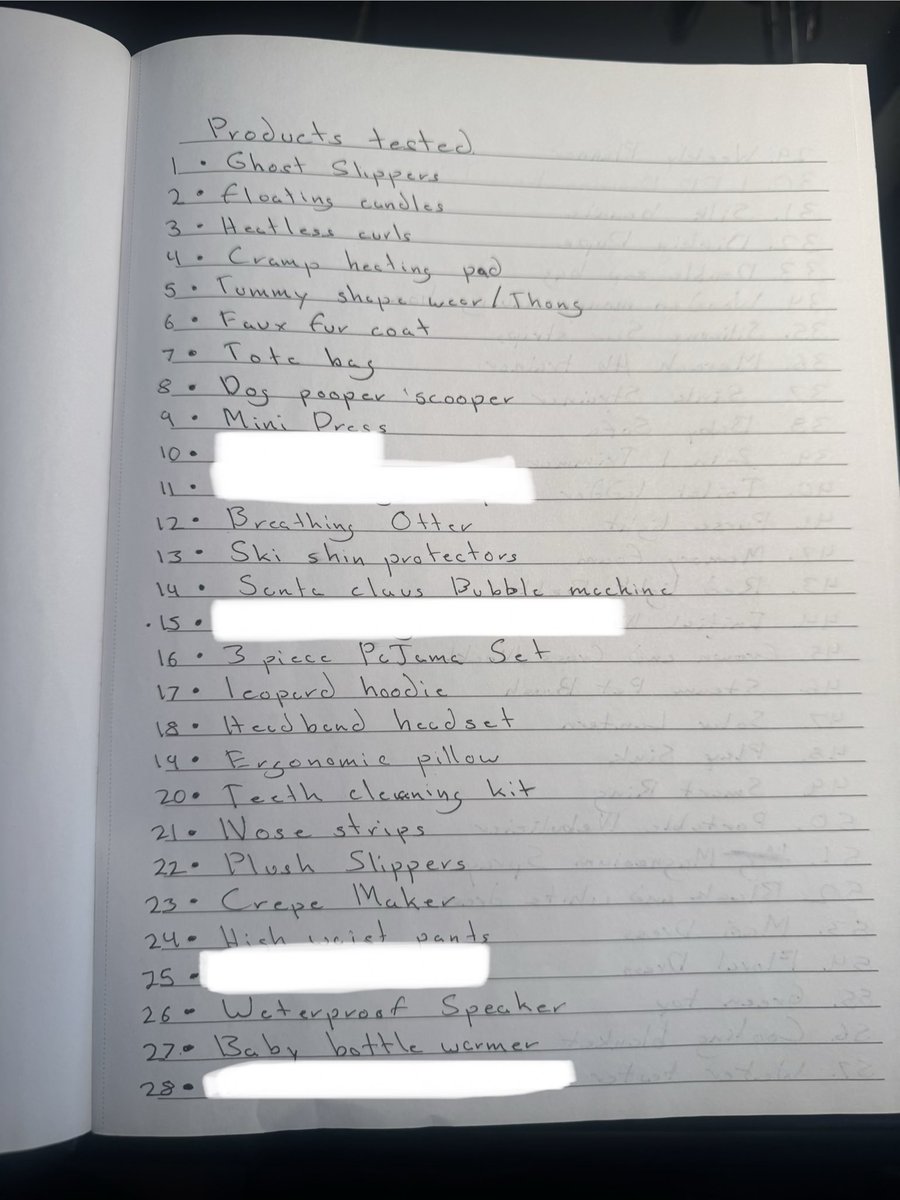 Products tested
1 • Ghost Slippers
2 • floating candles
3 • Heatless curls
4 • Cramp heating pad
5 • Tummy shape wear / Thong
6 • Faux fur coat
7 • Tote bag
8 • Dog pooper scooper
9 • Mini Dress
10 •
11 •
12 • Breathing Otter
13 • Ski shin protectors
14 • Santa claus Bubble machine
15 •
16 • 3 piece PaJama Set
17 • leopard hoodie
18 • Headband headset
19 • Ergonomic pillow
20 • Teeth cleaning kit
21 • Nose strips
22 • Plush Slippers
23 • Crepe Maker
24 • High waist pants
25 •
26 • Waterproof Speaker
27 • Baby bottle warmer
28 •